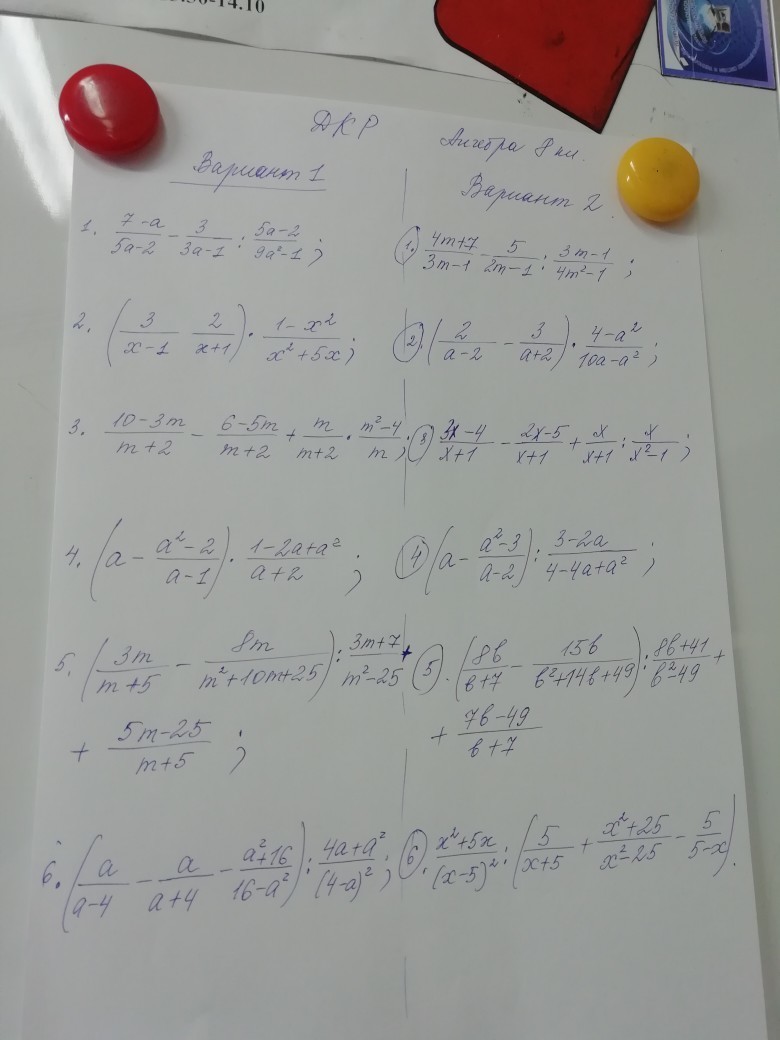 .30-14.10
ДКР
Алгебра 8 кл.
Вариант 1
1. (7-a)/(5a-2) - 3/(3a-1) : (5a-2)/(9a²-1) ;
2. (3/(x-1) 2/(x+1)) · (1-x²)/(x²+5x) ;
3. (10-3m)/(m+2) - (6-5m)/(m+2) + m/(m+2) · (m²-4)/m ;
4. (a - (a²-2)/(a-1)) · (1-2a+a²)/(a+2) ;
5. (3m/(m+5) - 8m/(m²+10m+25)) : (3m+7)/(m²-25) +
+ (5m-25)/(m+5) ;
6. (a/(a-4) - a/(a+4) - (a²+16)/(16-a²)) : (4a+a²)/(4-a)² ;
Вариант 2.
1. (4m+7)/(3m-1) - 5/(2m-1) : (3m-1)/(4m²-1) ;
2. (2/(a-2) - 3/(a+2)) · (4-a²)/(10a-a²) ;
3 (3x-4)/(x+1) - (2x-5)/(x+1) + x/(x+1) : x/(x²-1) ;
4 (a - (a²-3)/(a-2)) : (3-2a)/(4-4a+a²) ;
5. (8b/(b+7) - 15b/(b²+14b+49)) : (8b+41)/(b²-49) +
+ (7b-49)/(b+7)
6. (x²+5x)/(x-5)² : (5/(x+5) + (x²+25)/(x²-25) - 5/(5-x)).